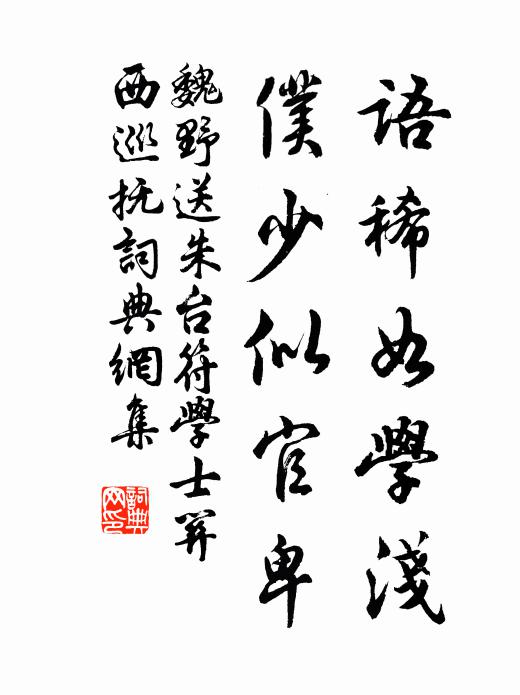 語稀如學淺
僕少似官卑
魏野送朱台符學士罢
西巡抚詞典網集
詞典
网印